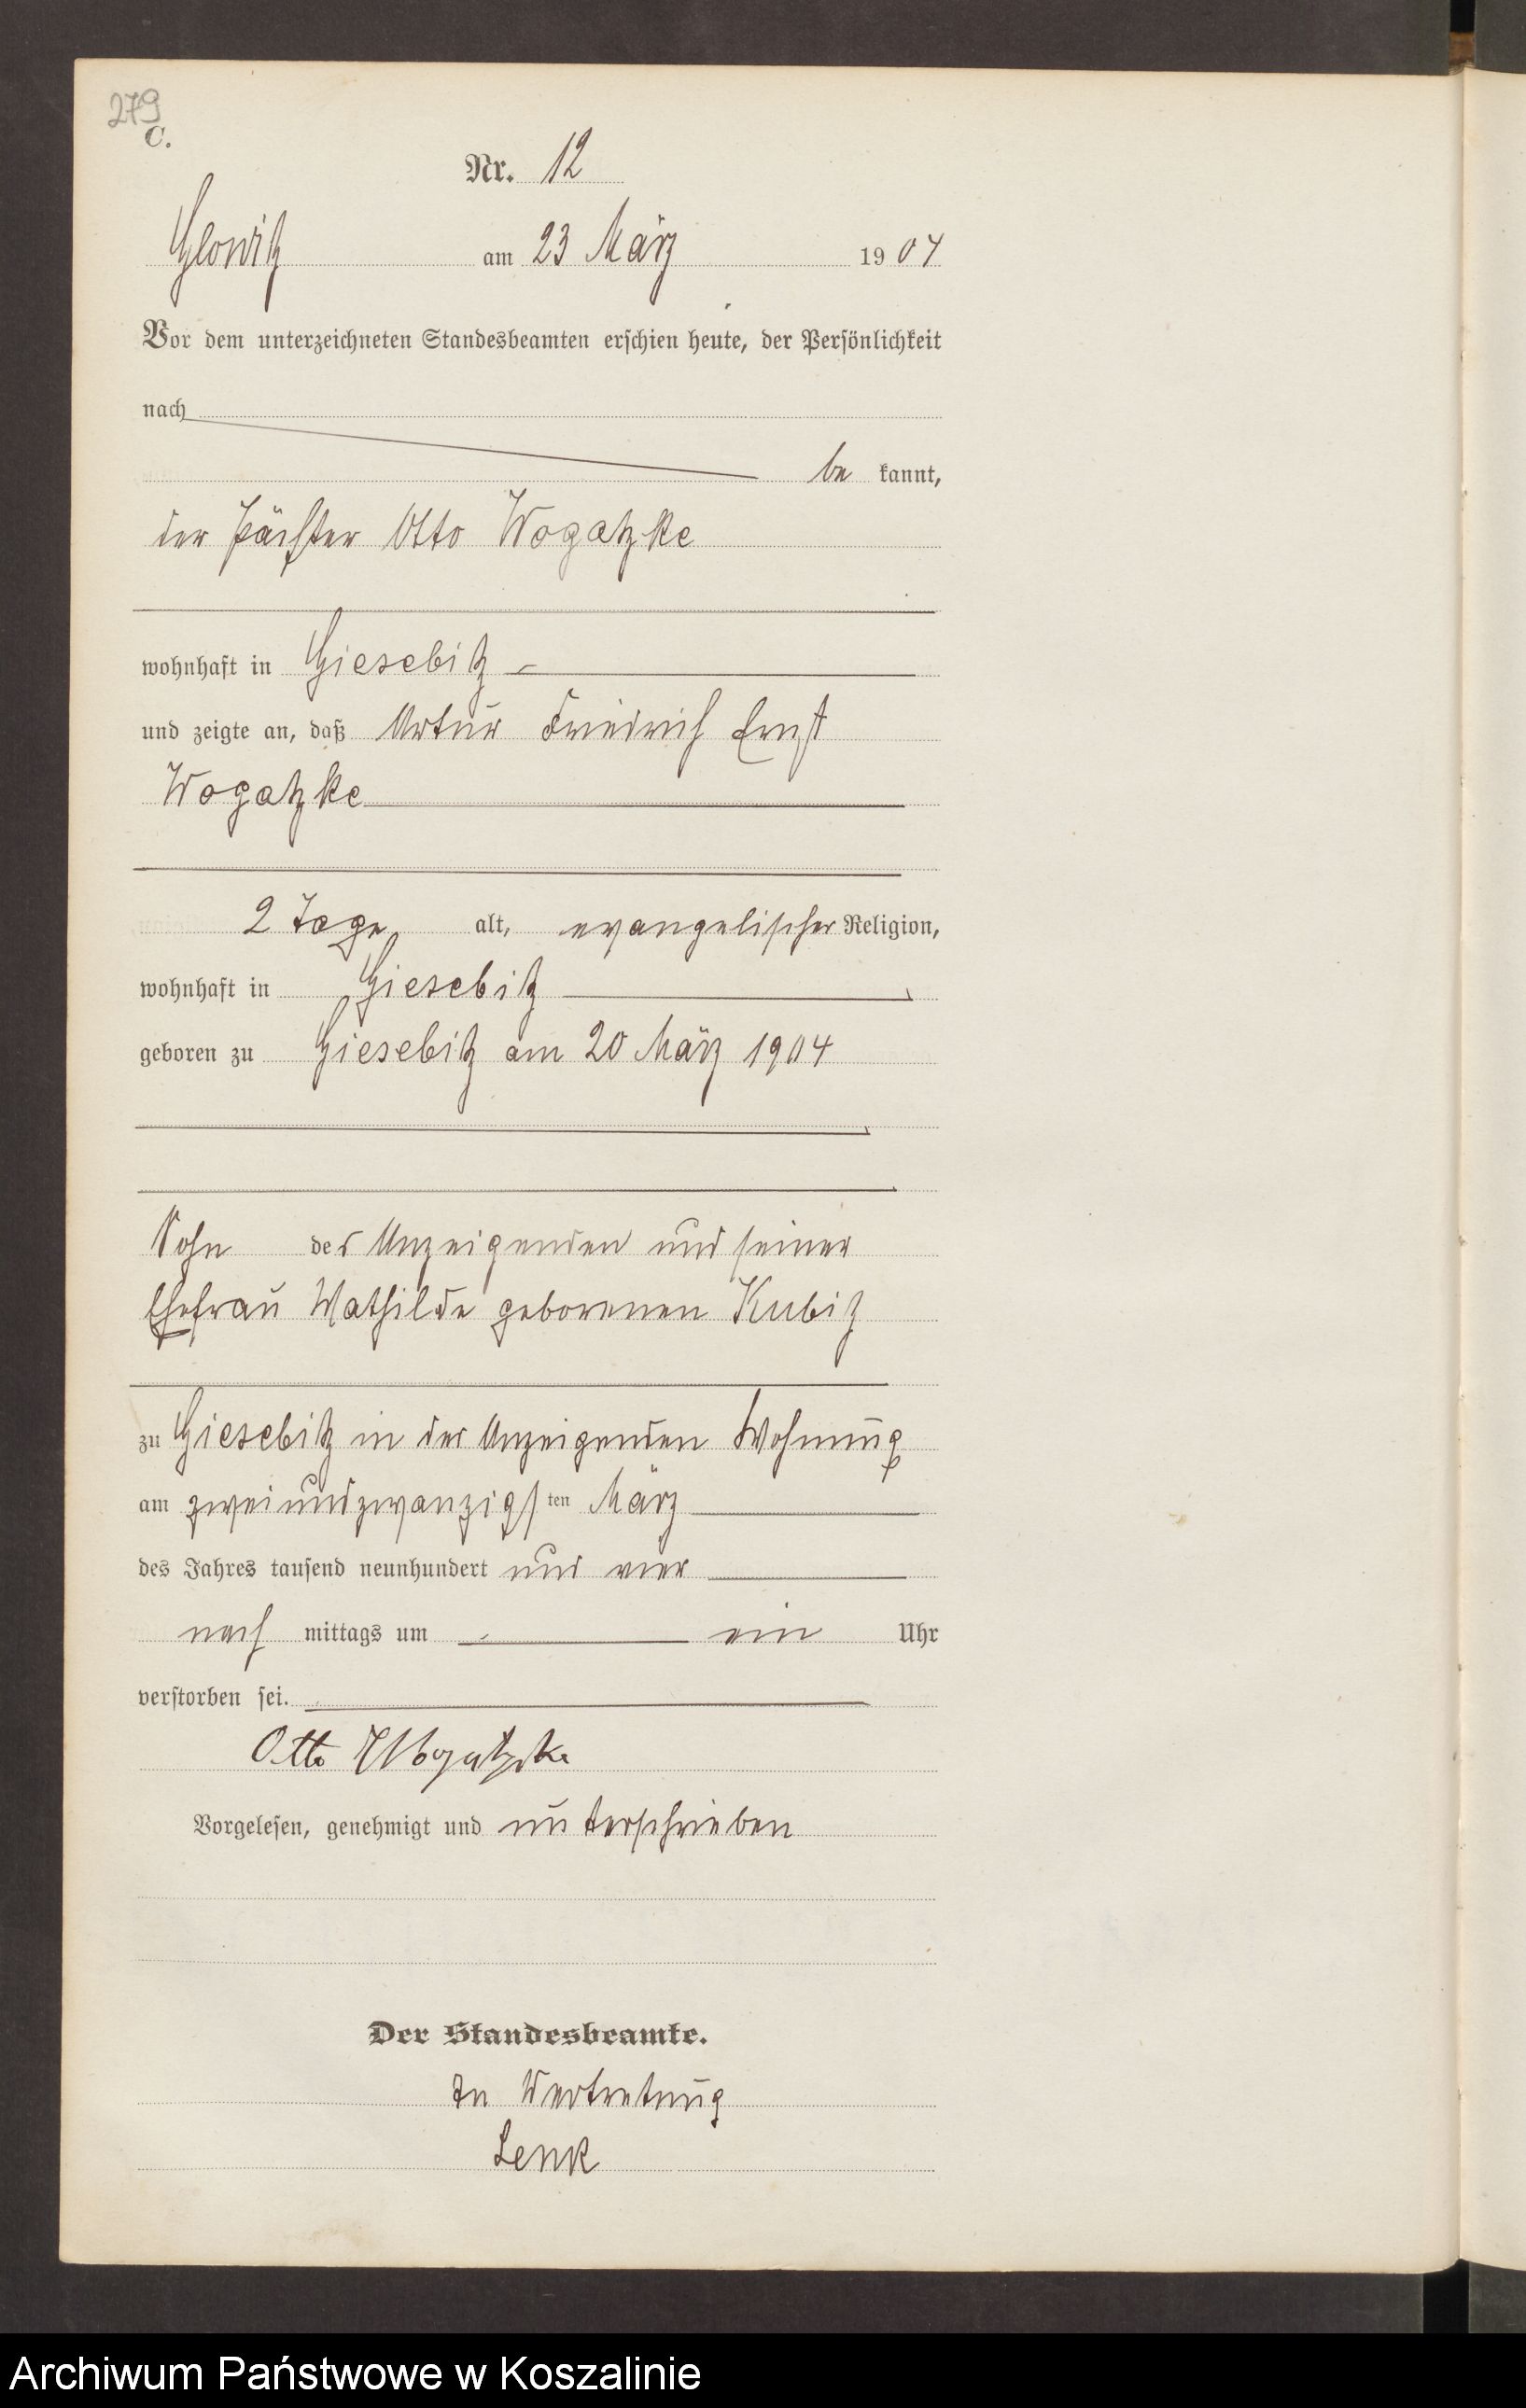 279
C.
Nr. 12
Glowitz am 23 März 1904
Vor dem unterzeichneten Standesbeamten erschien heute, der Persönlichkeit
nach
be kannt,
der Pächter Otto Wogatzke
wohnhaft in Giesebitz
und zeigte an, daß Artur Friedrich Ernst
Wogatzke
2 Tage alt, evangelischer Religion,
wohnhaft in Giesebitz
geboren zu Giesebitz am 20 März 1904
Sohn des Anzeigenden und seiner
Ehefrau Mathilde geborenen Kubitz
zu Giesebitz in des Anzeigenden Wohnung
am zweiundzwanzigsten März
des Jahres tausend neunhundert und vier
nach mittags um ein Uhr
verstorben sei.
Otto Wogatzke
Vorgelesen, genehmigt und unterschrieben
Der Standesbeamte.
In Vertretung
Lenk
Archiwum Państwowe w Koszalinie